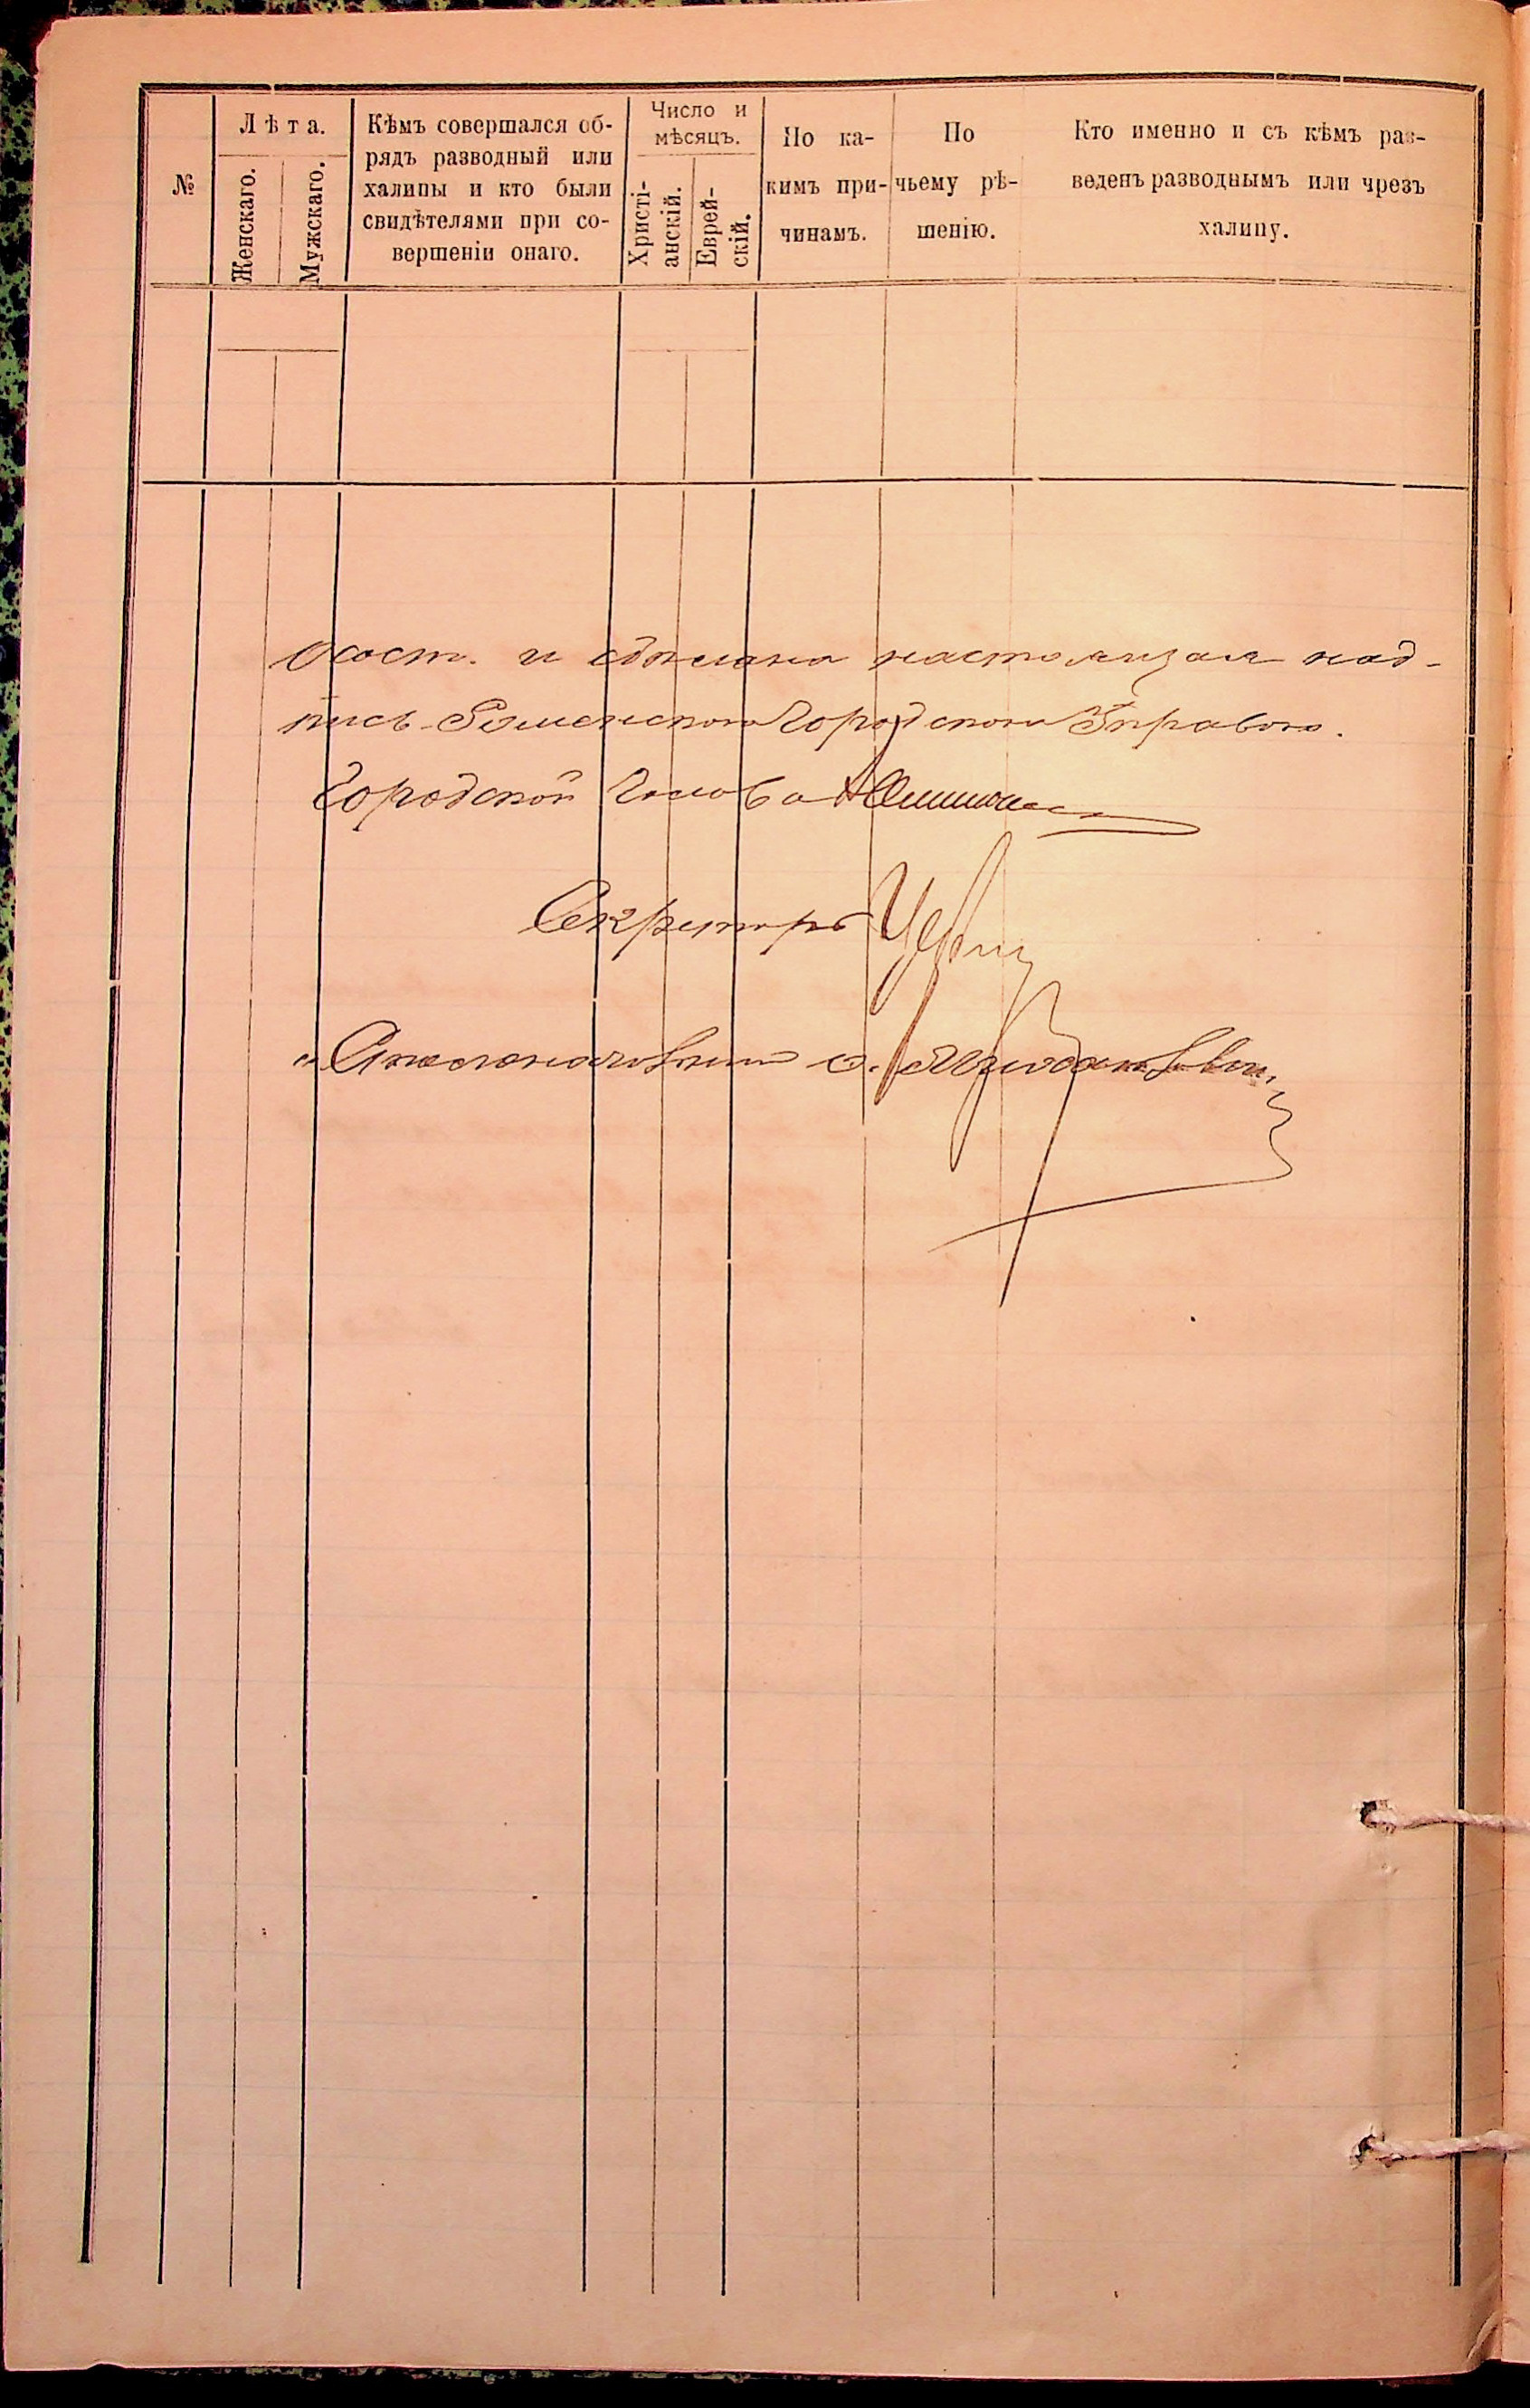 №
Лѣта.
Женскаго.
Мужскаго.
Кѣмъ совершался об-
рядъ разводный или
халицы и кто были
свидѣтелями при со-
вершеніи онаго.
Число и
мѣсяцъ.
Христі-
анскій.
Еврей-
скій.
По ка-
кимъ при-
чинамъ.
По
чьему рѣ-
шенію.
Кто именно и съ кѣмъ раз-
веденъ разводнымъ или чрезъ
халицу.
и сдѣлана настоящая над-
пись Роменскою Городскою Управою.
Городской Голова
Секретарь